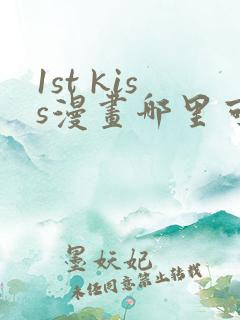 1st kis
s漫畫那里可
墨妖妃
未经同意禁止转载